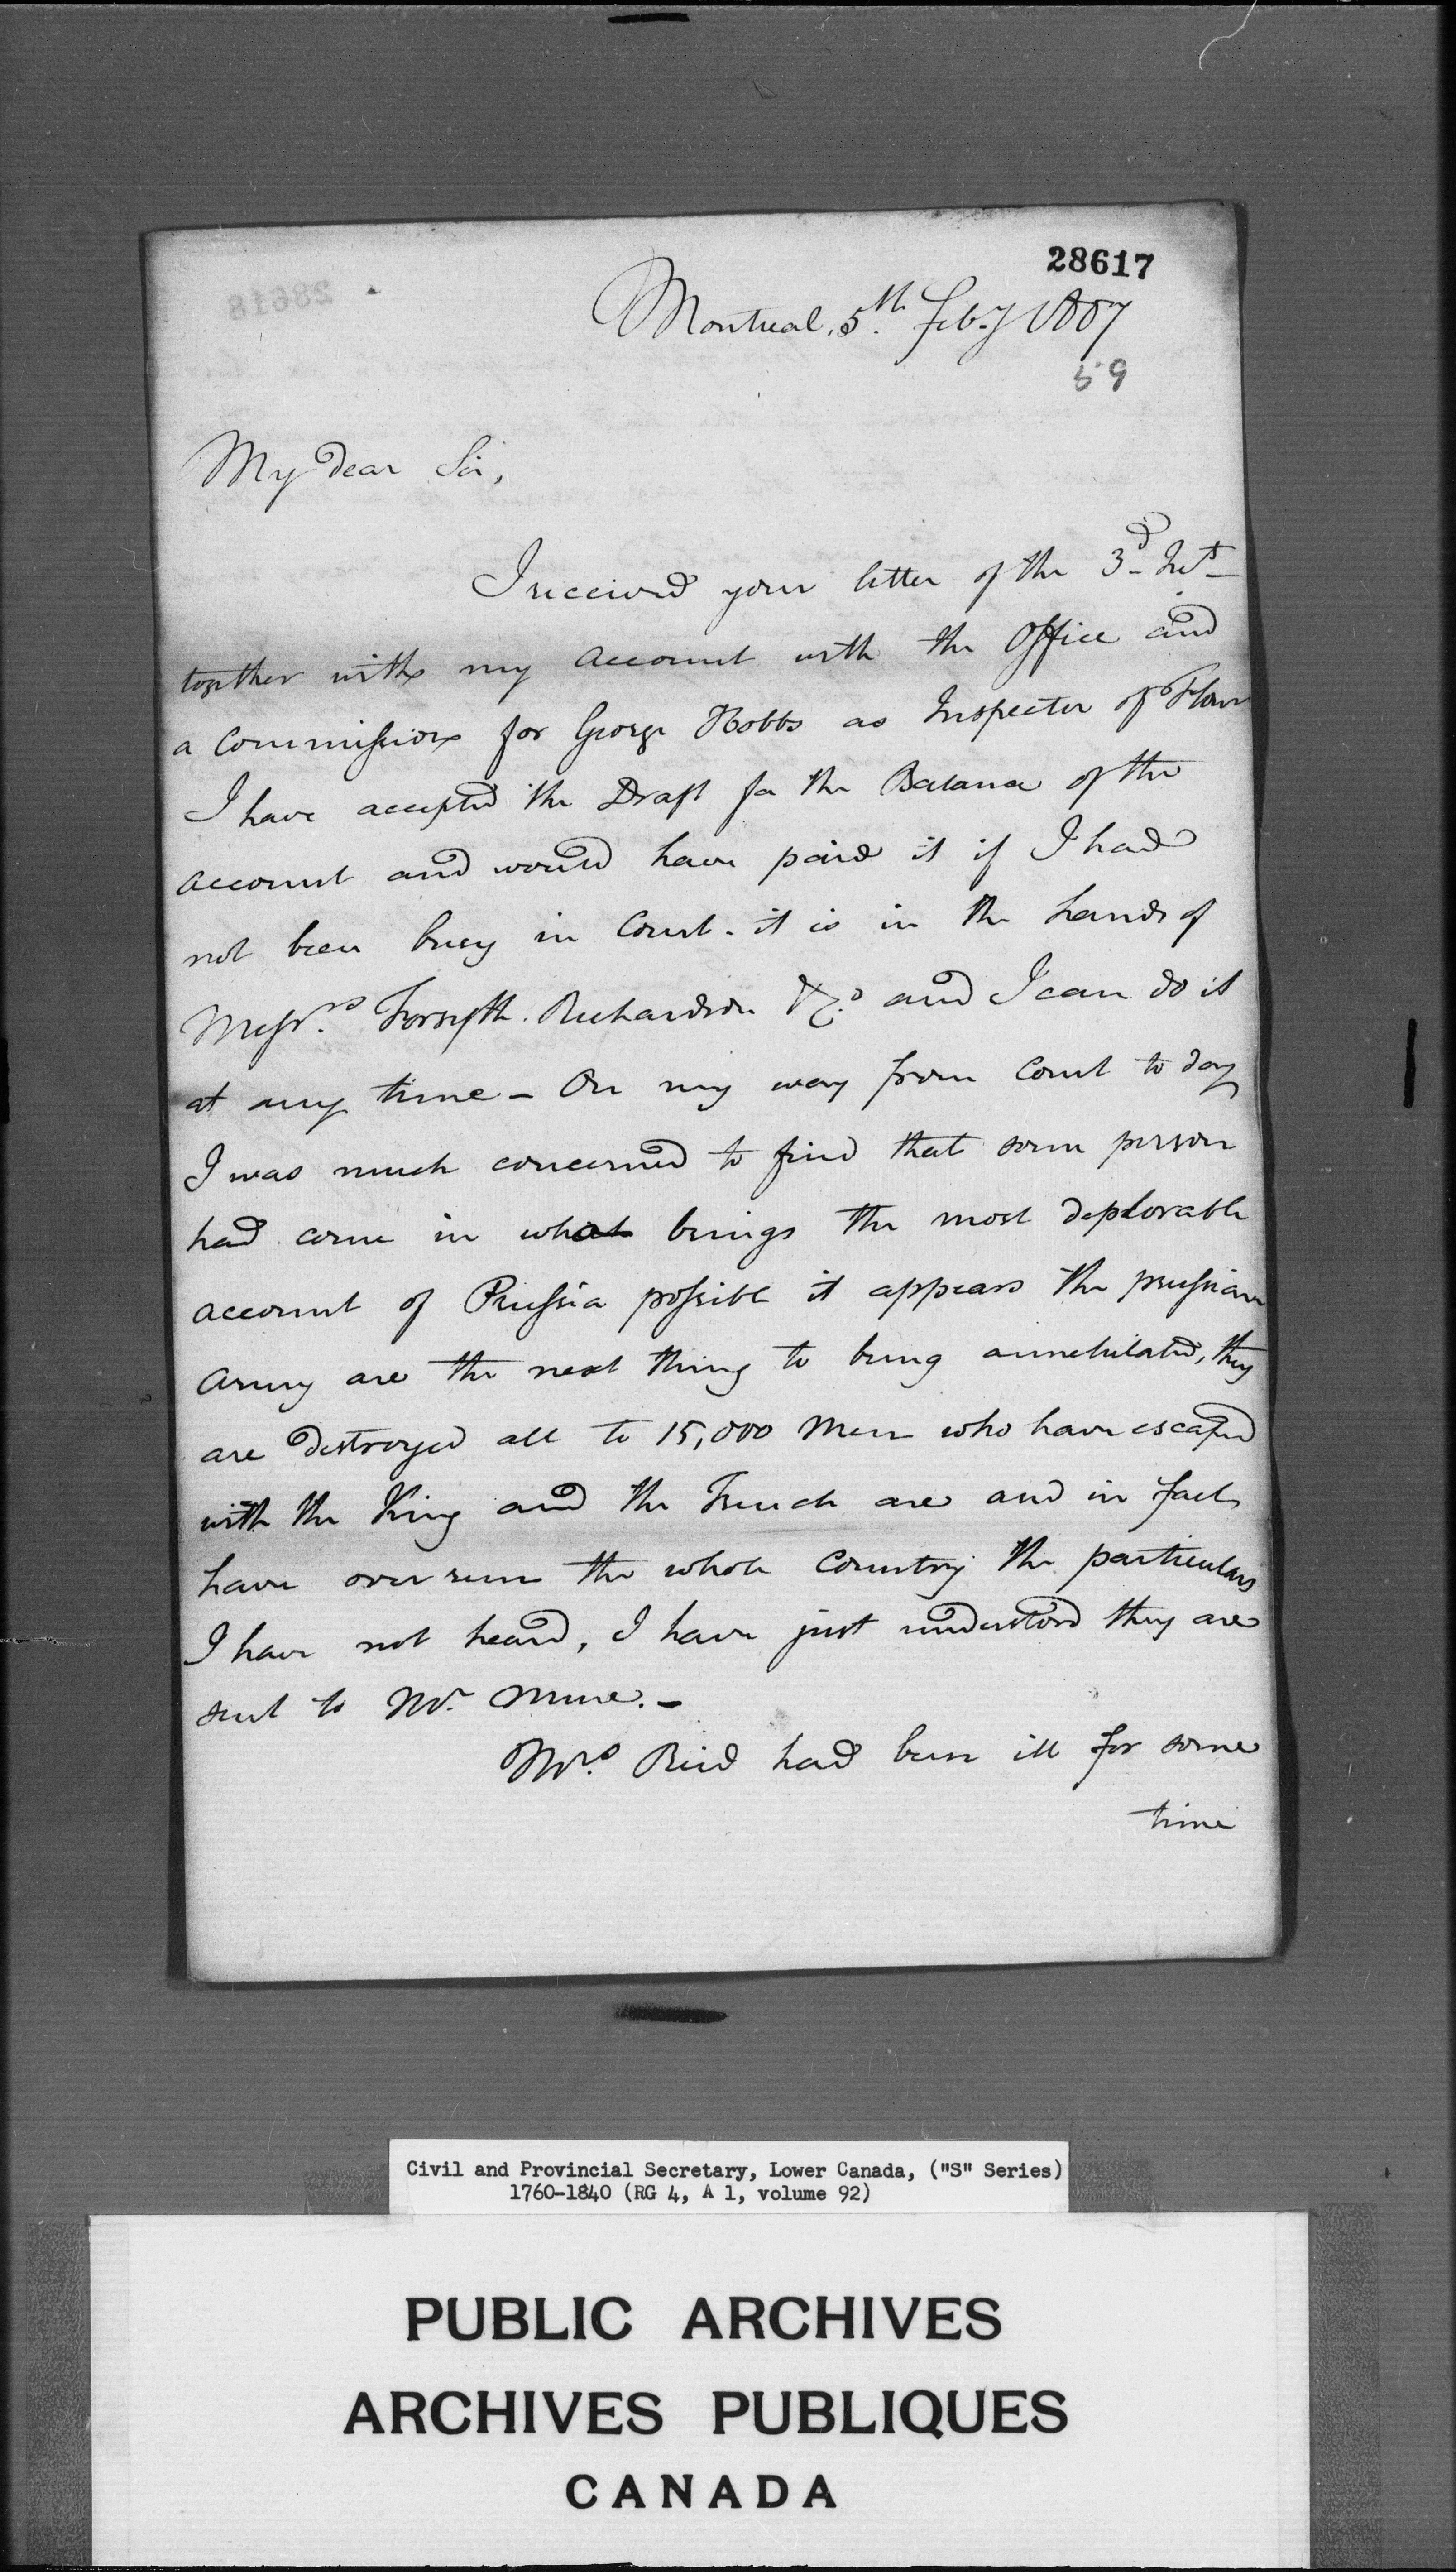 28617
28618
Montreal, 5th. Feby 1807
59
My Dear Sir,
I received your letter of the 3d Inst
together with my account with the Office and
a Commission for George Hobbs as Inspector of Flour
I have accepted the Draft for the Balance of the
account and would have paid it if I had
not been busy in Court. it is in the hands of
Messrs. Forsyth. Richardson & Co. and I can do it
at any time - On my way from Court to day
I was much concerned to find that some person
had come in what brings the most deplorable
account of Prussia possible it appears the prussian
army are the next thing to being annehilated, they
are destroyed all to 15,000 Men who have escaped
with the King and the French are and in fact
have over run the whole Country the particulars
I have not heard, I have just understood they are
sent to Mr. Mure. -
Mrs. Reid had been ill for some
time
Civil and Provincial Secretary, Lower Canada, ("S" Series)
1760-1840 (RG 4, A 1, volume 92)
PUBLIC ARCHIVES
ARCHIVES PUBLIQUES
CANADA